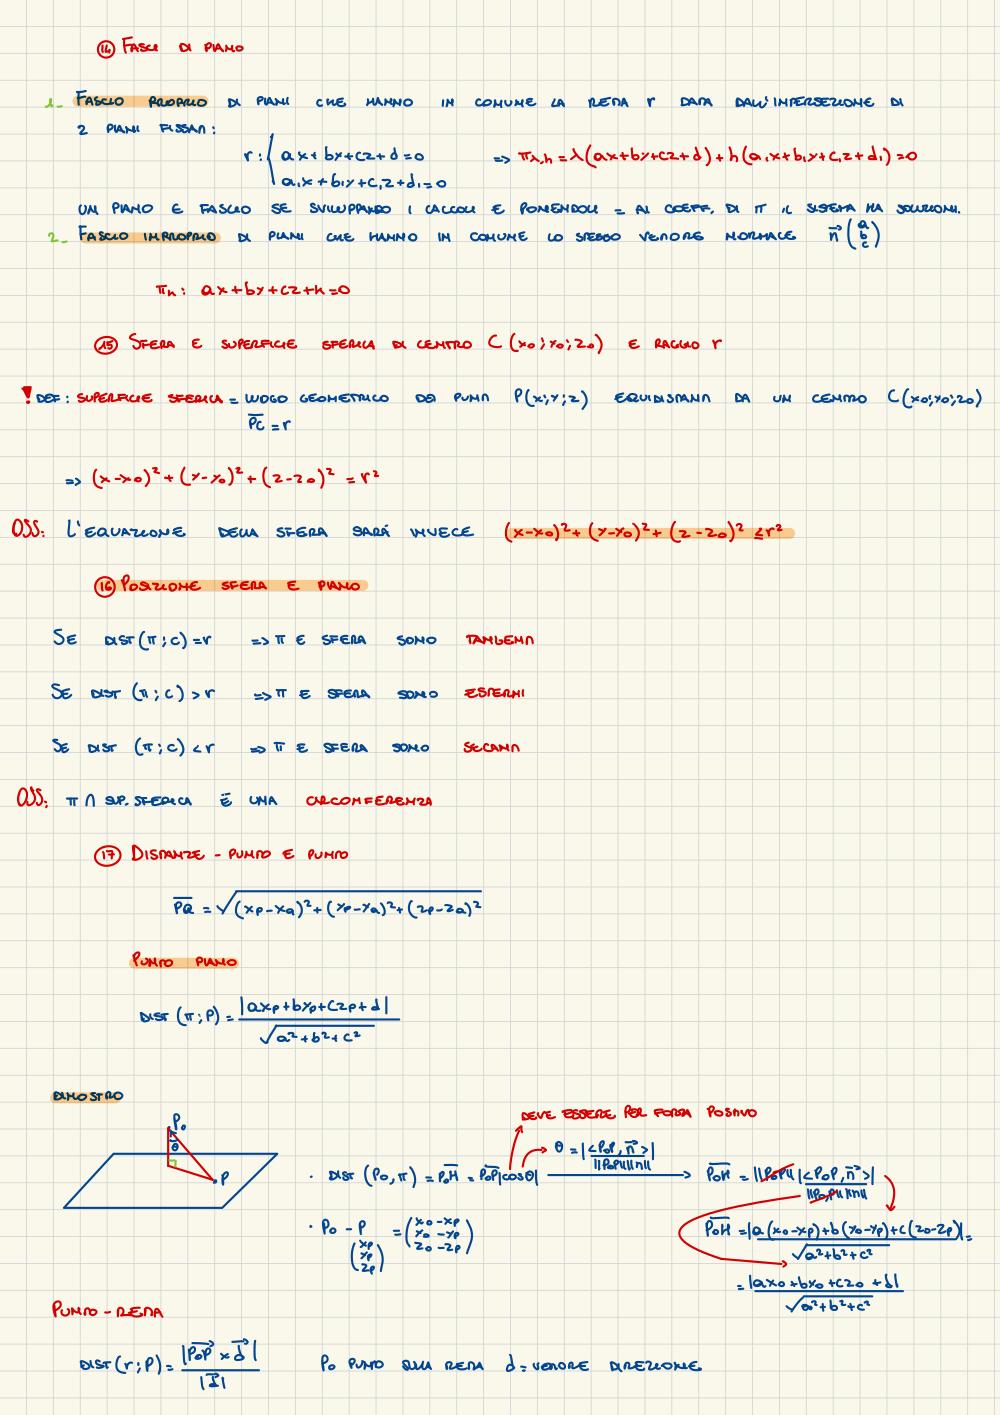 14 FASCI DI PIANO
1- FASCIO PROPRIO DI PIANI CHE HANNO IN COMUNE LA RETTA r DATA DALL'INTERSEZIONE DI
2 PIANI FISSATI:
r: { ax+by+cz+d=0 => πλ,h = λ(ax+by+cz+d)+h(a₁x+b₁y+c₁z+d₁)=0
a₁x+b₁y+c₁z+d₁=0
UN PIANO E FASCIO SE SVILUPPANDO I CALCOLI E PONENDOLI = AI COEFF. DI π IL SISTEMA HA SOLUZIONI.
2- FASCIO IMPROPRIO DI PIANI CHE HANNO IN COMUNE LO STESSO VETTORE NORMALE n⃗ (a b c)
πk: ax+by+cz+k=0
15 SFERA E SUPERFICIE SFERICA DI CENTRO C (x₀;y₀;z₀) E RAGGIO r
! DEF: SUPERFICIE SFERICA = LUOGO GEOMETRICO DEI PUNTI P(x;y;z) EQUIDISTANTI DA UN CENTRO C(x₀;y₀;z₀)
PC = r
=> (x-x₀)²+(y-y₀)²+(z-z₀)² = r²
OSS: L'EQUAZIONE DELLA SFERA SARÁ INVECE (x-x₀)²+(y-y₀)²+(z-z₀)² ≤ r²
16 POSIZIONE SFERA E PIANO
SE DIST(π;C)=r => π E SFERA SONO TANGENTI
SE DIST (π;C)>r => π E SFERA SONO ESTERNI
SE DIST (π;C)<r => π E SFERA SONO SECANTI
OSS: π ∩ SUP. SFERICA È UNA CIRCONFERENZA
17 DISTANZE - PUNTO E PUNTO
PQ = √(xP-xQ)²+(yP-yQ)²+(zP-zQ)²
PUNTO PIANO
DIST (π;P) = |axP+byP+czP+d| / √a²+b²+c²
DIMOSTRO
DEVE ESSERE PER FORZA POSITIVO
P₀
θ
P
θ = |<P₀P, n⃗>| / ||P₀P|| ||n||
· DIST (P₀,π) = P₀H = P₀P|cosθ| → P₀H = ||P₀P|| |<P₀P, n⃗>| / ||P₀P|| ||n||
· P₀ - P (xP yP zP) = (x₀-xP y₀-yP z₀-zP)
P₀H = |a(x₀-xP)+b(y₀-yP)+c(z₀-zP)| / √a²+b²+c² =
= |ax₀+by₀+cz₀+d| / √a²+b²+c²
PUNTO - RETTA
DIST(r;P) = |P₀P × d⃗| / |d⃗| P₀ PUNTO SULLA RETTA d = VETTORE DIREZIONE